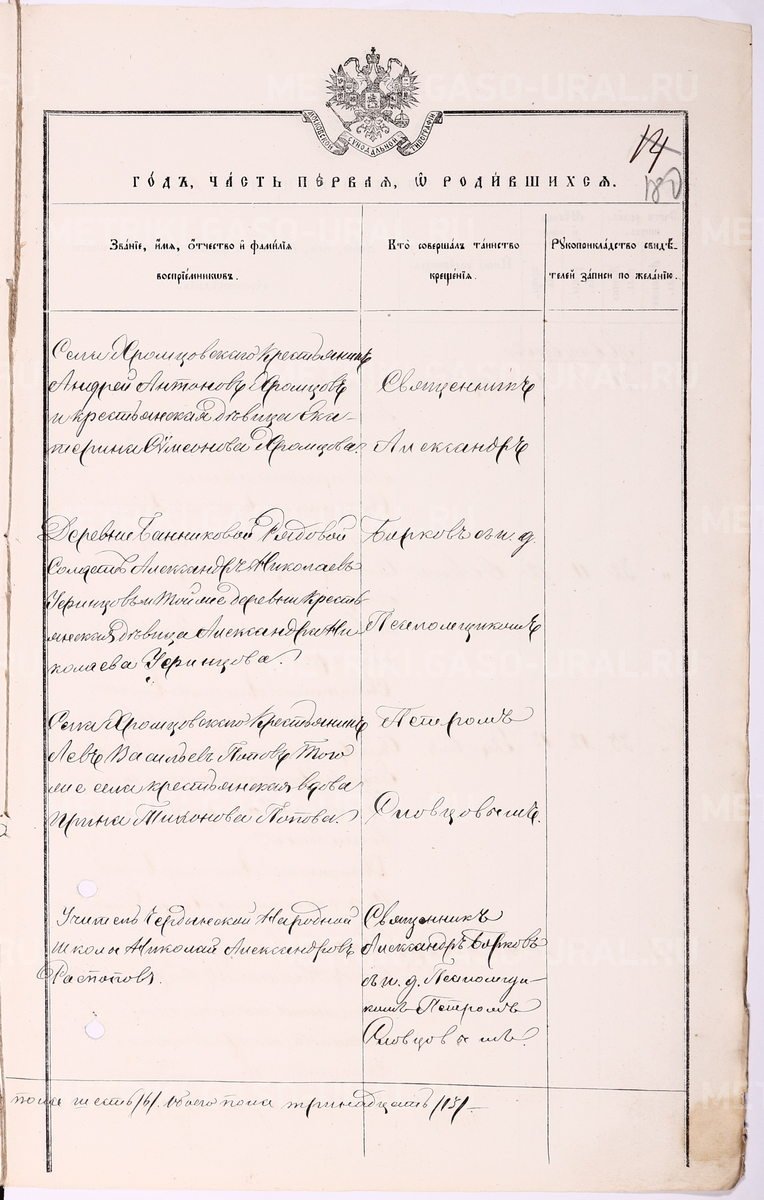 МОСКОВСКОЙ СѴНОДАЛЬНОЙ ТИПОГРАФІИ
14
180
ГО́ДЪ, ЧА́СТЬ ПЕ́РВАЯ, Ѡ҆ РОДИ́ВШИХСѦ.
Зва́ніе, и҆́мѧ, ѻ҆́тчество и҆ фами́лїѧ
воспрїе́мникѡвъ.
Кто̀ соверша́лъ та́инство
креще́нїѧ.
Рꙋкоприкла́дство свидѣ́-
телей за́писи по жела́нїю.
Села Хромцовскаго Крестьянинъ
Андрей Антоновъ Хромцовъ
и крестьянская дѣвица Ека-
терина Сѵмеонова Хромцова.
Священникъ
Александръ
Деревни Банниковой Рядовой
Солдатъ Александръ Николаевъ
и тойже деревни Кресть-
янская дѣвица Александра Ни-
колаева
Барковъ съ и. д.
Псаломщикомъ
Села Хромцовскаго Крестьянинъ
Левъ Васильевъ Поповъ того
же села крестьянская вдова
Ирина Тихонова Попова.
Петромъ
Словцовымъ.
Учитель Чердынской Народной
школы Николай Александровъ
Распоповъ.
Священникъ
Александръ Барковъ
съ и. д. Псаломщи-
комъ Петромъ
Словцовымъ.
пола шесть /6/. обоего пола тринадцать /13/ —